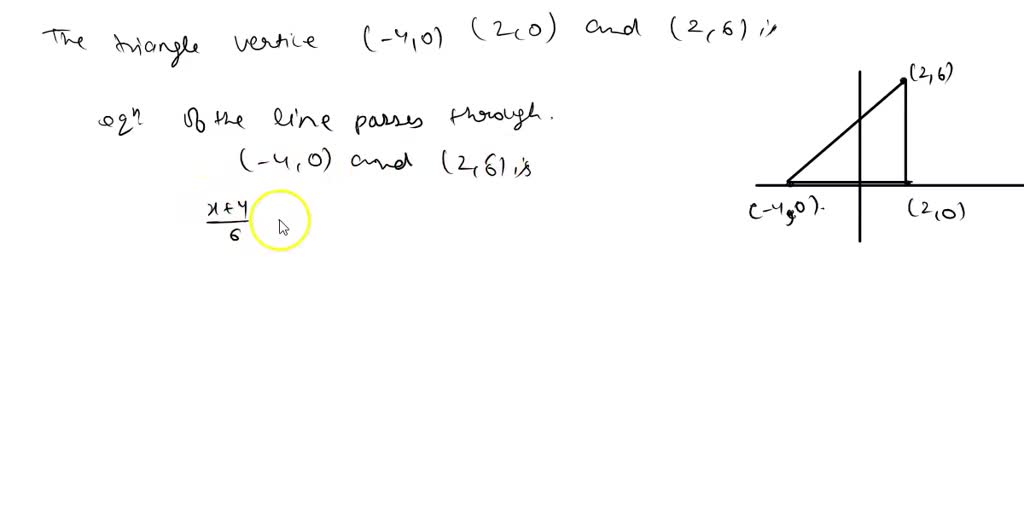 The triangle vertice (-4,0) (2,0) and (2,6) is
(2,6)
eqn of the line passes through.
(-4,0) and (2,6) is
(-4,0). (2,0)
x+4
6